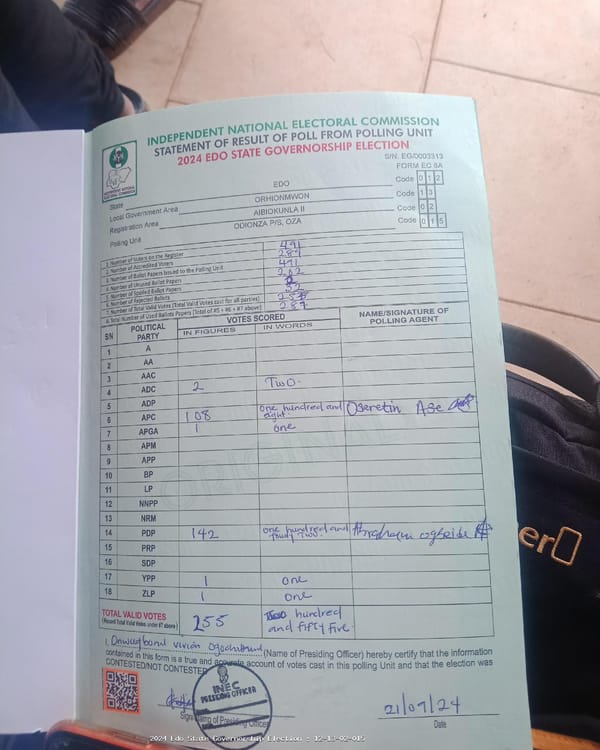 INDEPENDENT NATIONAL ELECTORAL COMMISSION
STATEMENT OF RESULT OF POLL FROM POLLING UNIT
2024 EDO STATE GOVERNORSHIP ELECTION
S/N. EG/0003313
FORM EC 8A
State EDO Code 0 1 2
Local Government Area ORHIONMWON Code 1 3
Registration Area AIBIOKUNLA II Code 0 2
Polling Unit ODIONZA P/S, OZA Code 0 1 5
1. Number of Voters on the Register 491
2. Number of Accredited Voters 287
3. Number of Ballot Papers Issued to the Polling Unit 491
4. Number of Unused Ballot Papers 202
5. Number of Spoiled Ballot Papers 2
6. Number of Rejected Ballots 32
7. Number of Total Valid Votes (Total Valid Votes cast for all parties) 255
8. Total Number of Used Ballots Papers (Total of #5 + #6 + #7 above) 287
SN POLITICAL PARTY VOTES SCORED NAME/SIGNATURE OF POLLING AGENT
IN FIGURES IN WORDS
1 A
2 AA
3 AAC
4 ADC 2 Two
5 ADP
6 APC 108 one hundred and eight Oseretin Ase
7 APGA 1 one
8 APM
9 APP
10 BP
11 LP
12 NNPP
13 NRM
14 PDP 142 one hundred and fourty two Abraham
15 PRP
16 SDP
17 YPP 1 one
18 ZLP 1 one
TOTAL VALID VOTES 255 hundred
(Record Total Valid under #7 above) and fifty five
I, vivian (Name of Presiding Officer) hereby certify that the information
contained in this form is a true and accurate account of votes cast in this polling Unit and that the election was
CONTESTED/NOT CONTESTED
INEC
PRESIDING OFFICER
Sign/Stamp of Presiding Officer
21/09/24
Date
2024 Edo State Governorship Election : 12-13-02-015